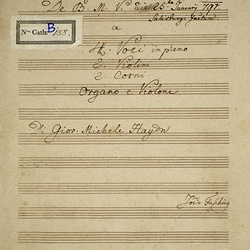 De B. M. V. Die 25 Januarij 797.
Salisburgo
No Cath. B 155.
a
4. Voci in pieno
2. Violini
2. Corni
Organo e Violone
Di Giov. Michele Haydn